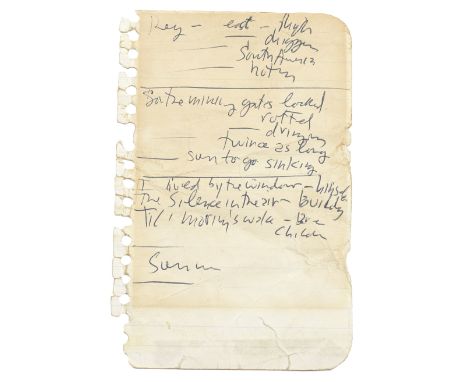 Key - east - high
diggin
South America
So the mining gates locked
rotted
driving
twice as long
sun to go sinking
I lived by the window -
The silence in the air - building
Til morning's wake -